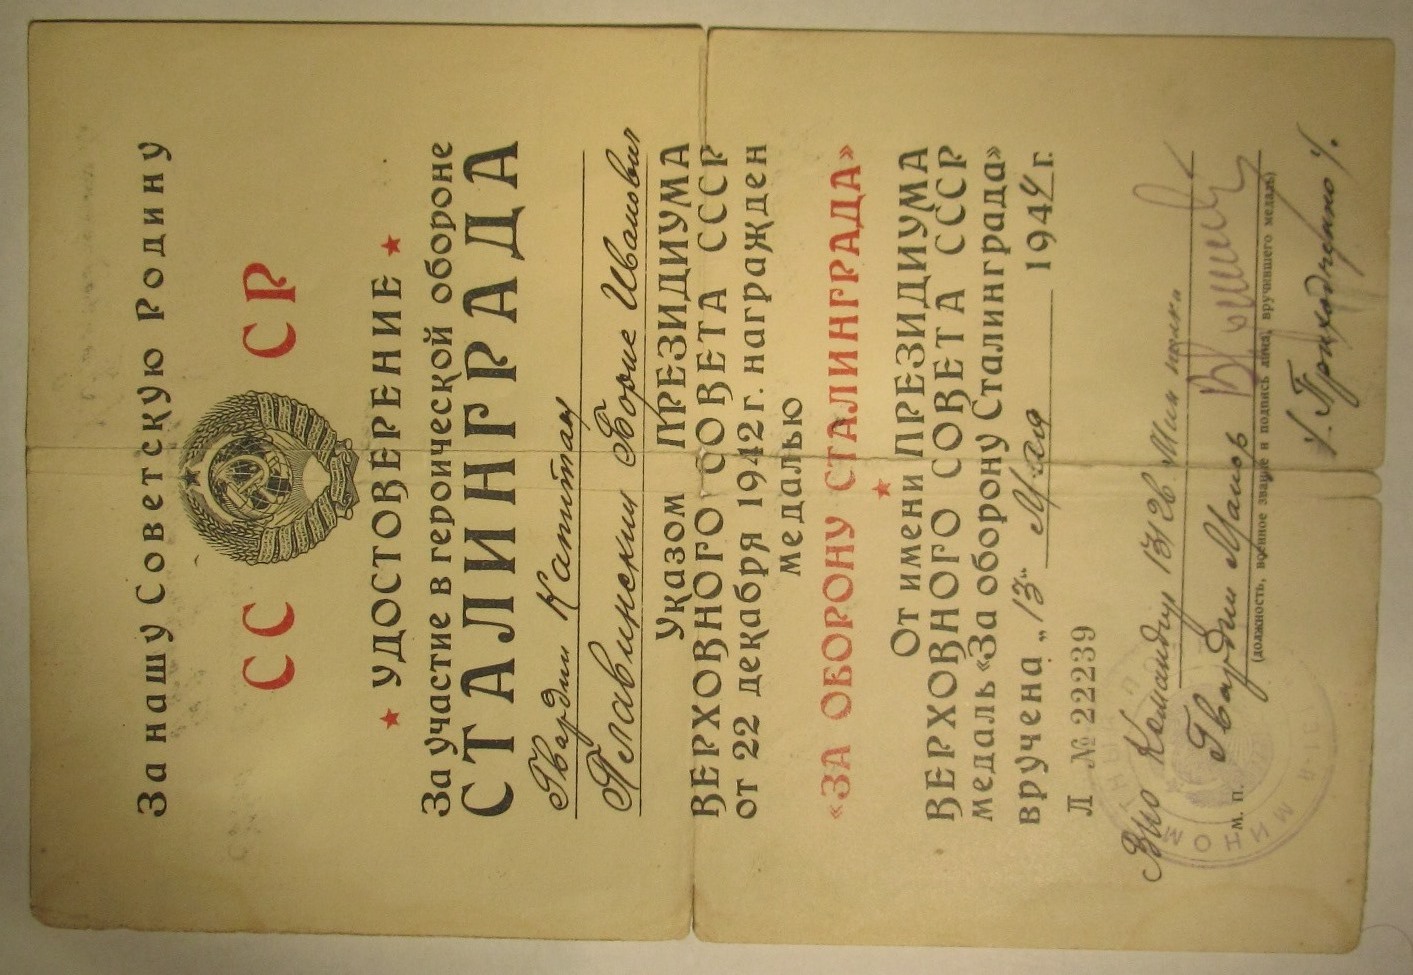 За нашу Советскую Родину
СС СР
УДОСТОВЕРЕНИЕ
За участие в героической обороне
СТАЛИНГРАДА
Гвардии Капитан
Главинский Борис Иванович
Указом ПРЕЗИДИУМА
ВЕРХОВНОГО СОВЕТА СССР
от 22 декабря 1942 г. награжден
медалью
«ЗА ОБОРОНУ СТАЛИНГРАДА»
От имени ПРЕЗИДИУМА
ВЕРХОВНОГО СОВЕТА СССР
медаль «За оборону Сталинграда»
вручена „13“ Мая 1944 г.
Л № 22239
Врио Командир 131 гв. Мин полка
М. П. Гвардии Майор
(должность, военное звание и подпись лица, вручившего медаль)
/. Приходченко /.
МИНОМ